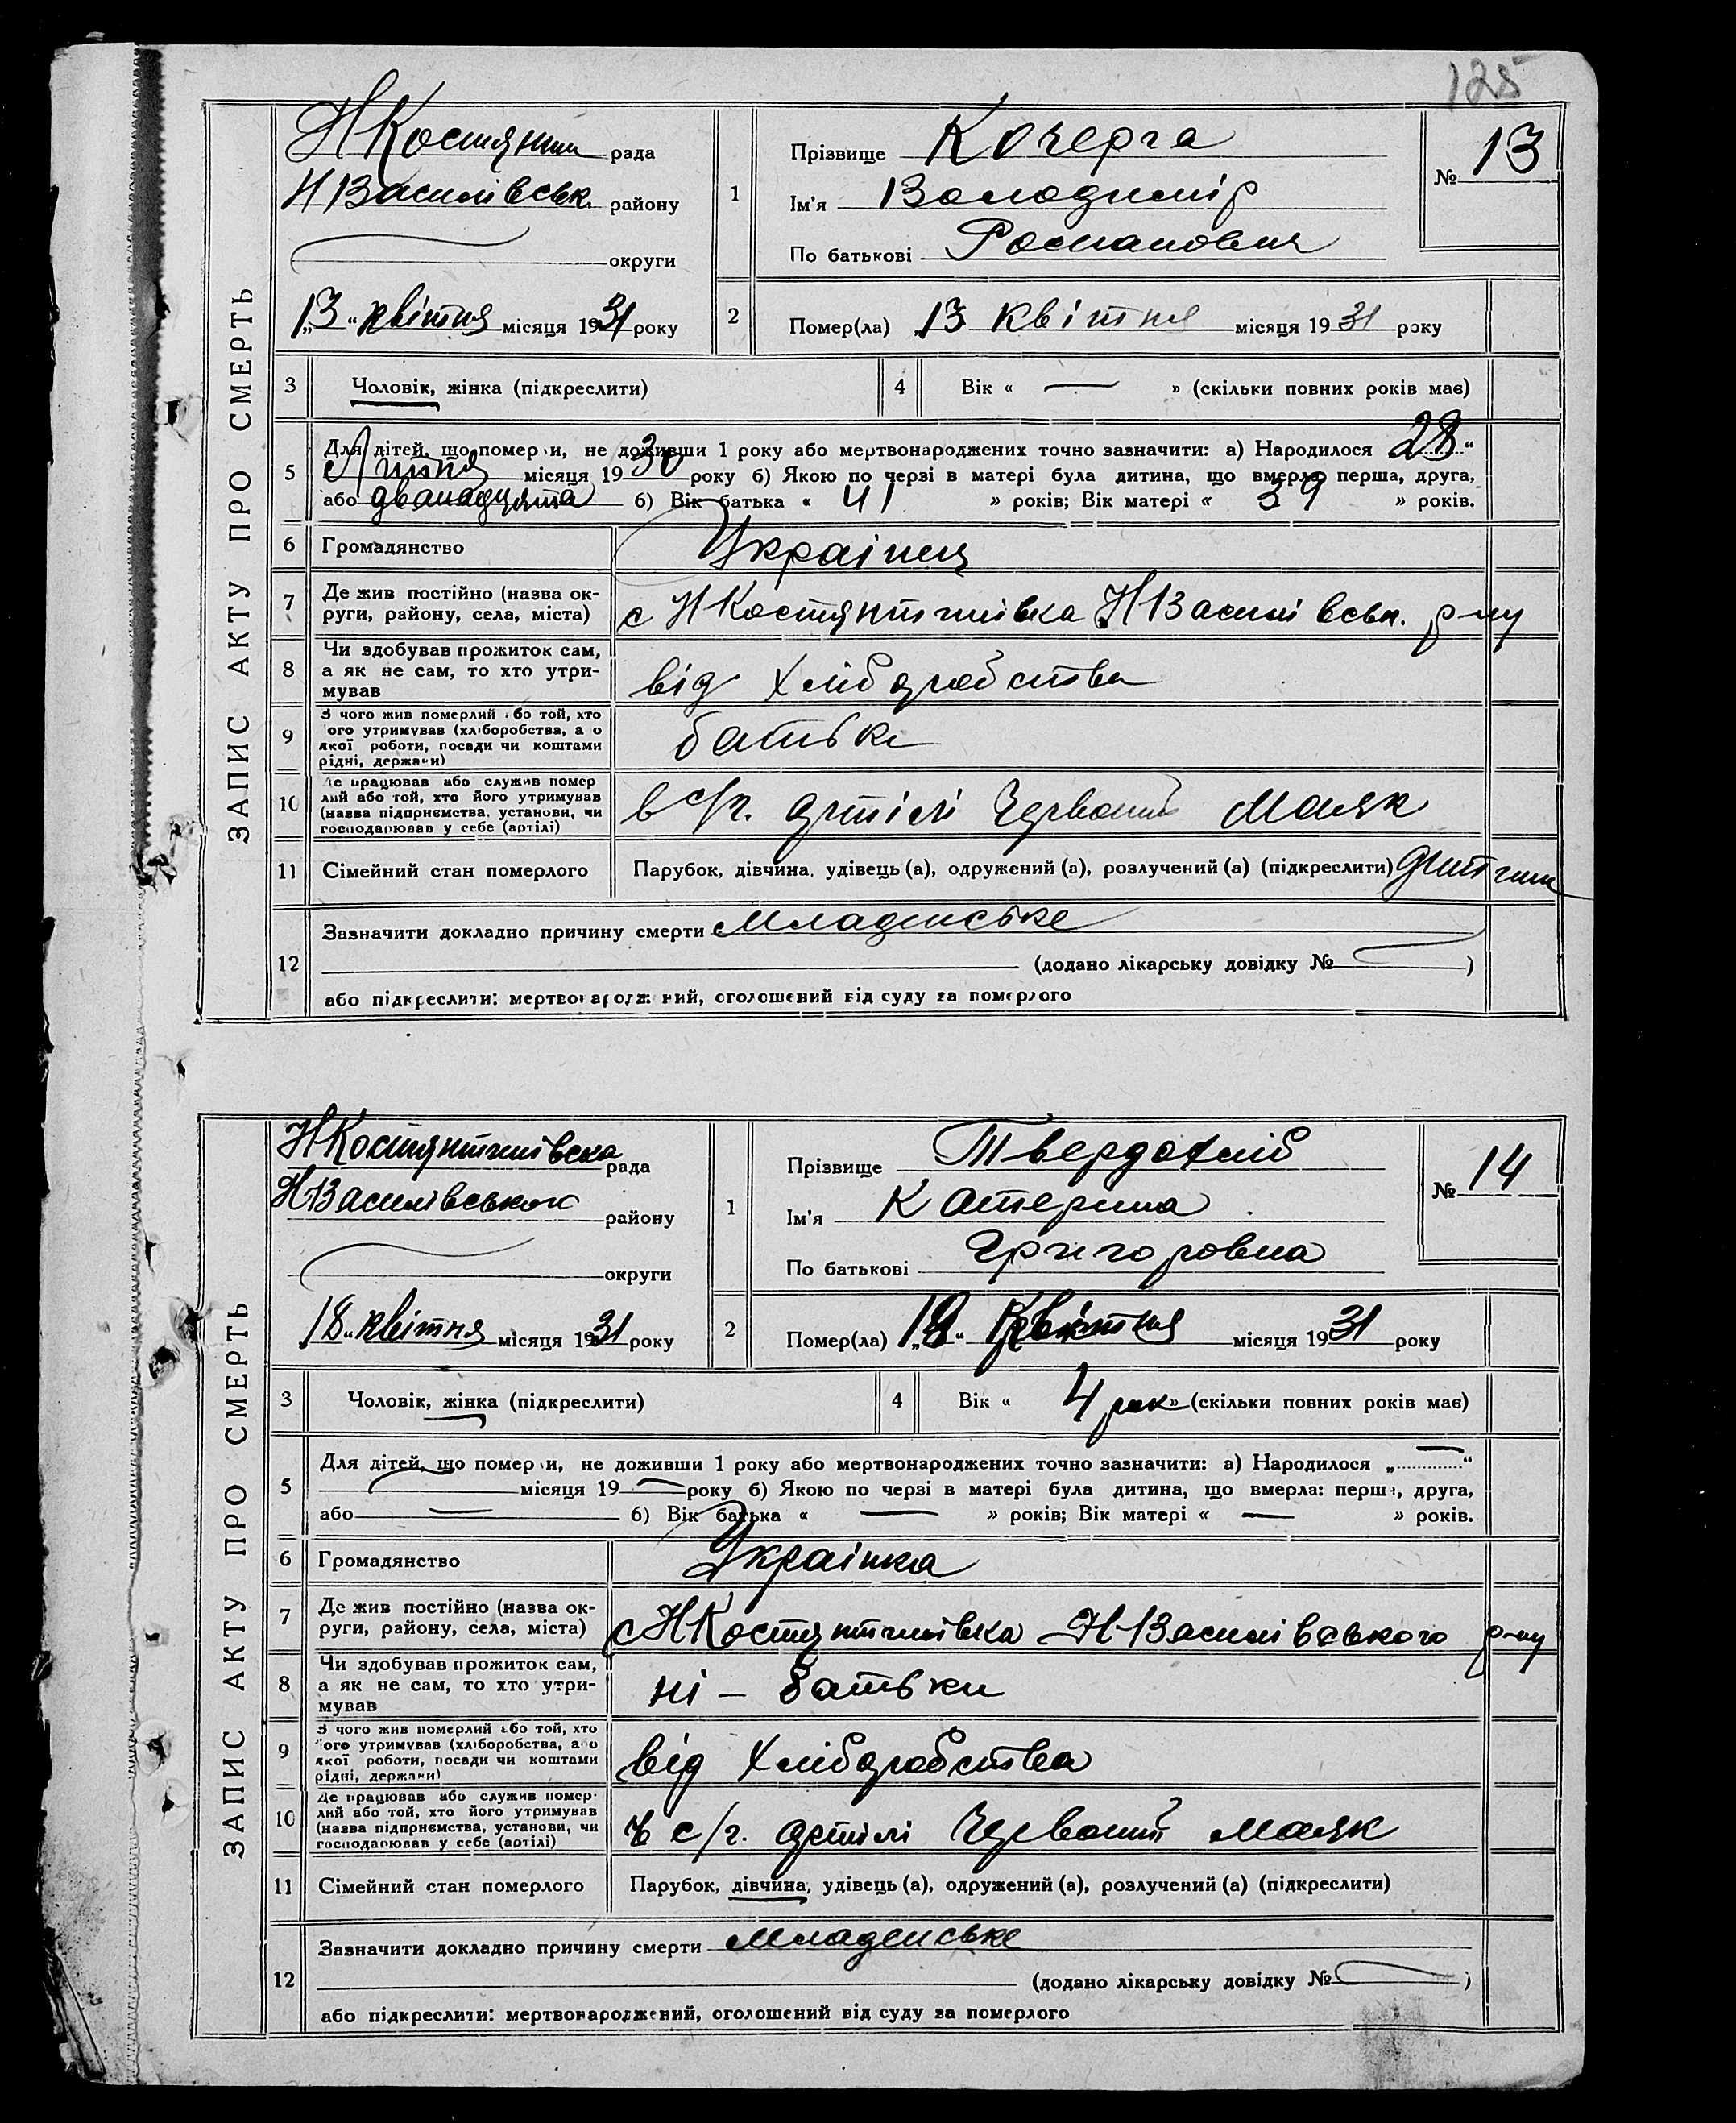 125
ЗАПИС АКТУ ПРО СМЕРТЬ
НКостянтин рада
НВасилівськ. району
округи
„13“ квітня місяця 1931 року
1
Прізвище Кочерга
Ім'я Володимір
По батькові Романович
№ 13
2
Помер(ла) „13 квітня місяця 1931 року
3 Чоловік, жінка (підкреслити)
4 Вік « — » (скільки повних років має)
5 Для дітей, що померли, не доживши 1 року або мертвонароджених точно зазначити: а) Народилося 28“
Липня місяця 1930 року б) Якою по черзі в матері була дитина, що вмерла перша, друга,
або дванадцята б) Вік батька « 41 » років; Вік матері « 39 » років.
6 Громадянство Украінец
7 Де жив постійно (назва ок-
руги, району, села, міста) с НКостянтинівка НВасилівськ. р-ну
8 Чи здобував прожиток сам,
а як не сам, то хто утри-
мував
від хліборобства
9 З чого жив померлий або той, хто
його утримував (хліборобства, або
якої роботи, посади чи коштами
рідні, держави)
батьки
10 Де працював або служив помер
лий або той, хто його утримував
(назва підприємства, установи, чи
господарював у себе (артілі)
в с/г. артілі Червоний Маяк
11 Сімейний стан померлого Парубок, дівчина, удівець (а), одружений (а), розлучений (а) (підкреслити) дитина
12 Зазначити докладно причину смерти Младенське
(додано лікарську довідку № )
або підкреслити: мертвонароджений, оголошений від суду за померлого
ЗАПИС АКТУ ПРО СМЕРТЬ
НКостянтинівска рада
НВасилівського району
округи
18 „ квітня місяця 1931 року
1
Прізвище Твердохліб
Ім'я Катерина
По батькові Григоровна
№ 14
2
Помер(ла) „18“ Квітня місяця 1931 року
3 Чоловік, жінка (підкреслити)
4 Вік « 4 рок» (скільки повних років має)
5 Для дітей, що померли, не доживши 1 року або мертвонароджених точно зазначити: а) Народилося „ — “
— місяця 19 — року б) Якою по черзі в матері була дитина, що вмерла: перша, друга,
або — б) Вік батька « — » років; Вік матері « — » років.
6 Громадянство Украінка
7 Де жив постійно (назва ок-
руги, району, села, міста) с НКостянтинівка Н-Василівського р-ну
8 Чи здобував прожиток сам,
а як не сам, то хто утри-
мував
ні – батьки
9 З чого жив померлий або той, хто
його утримував (хліборобства, або
якої роботи, посади чи коштами
рідні, держави)
від хліборобства
10 Де працював або служив помер-
лий або той, хто його утримував
(назва підприємства, установи, чи
господарював у себе (артілі)
в с/г. артілі Червоний Маяк
11 Сімейний стан померлого Парубок, дівчина, удівець (а), одружений (а), розлучений (а) (підкреслити)
12 Зазначити докладно причину смерти Младенське
(додано лікарську довідку № )
або підкреслити: мертвонароджений, оголошений від суду за померлого